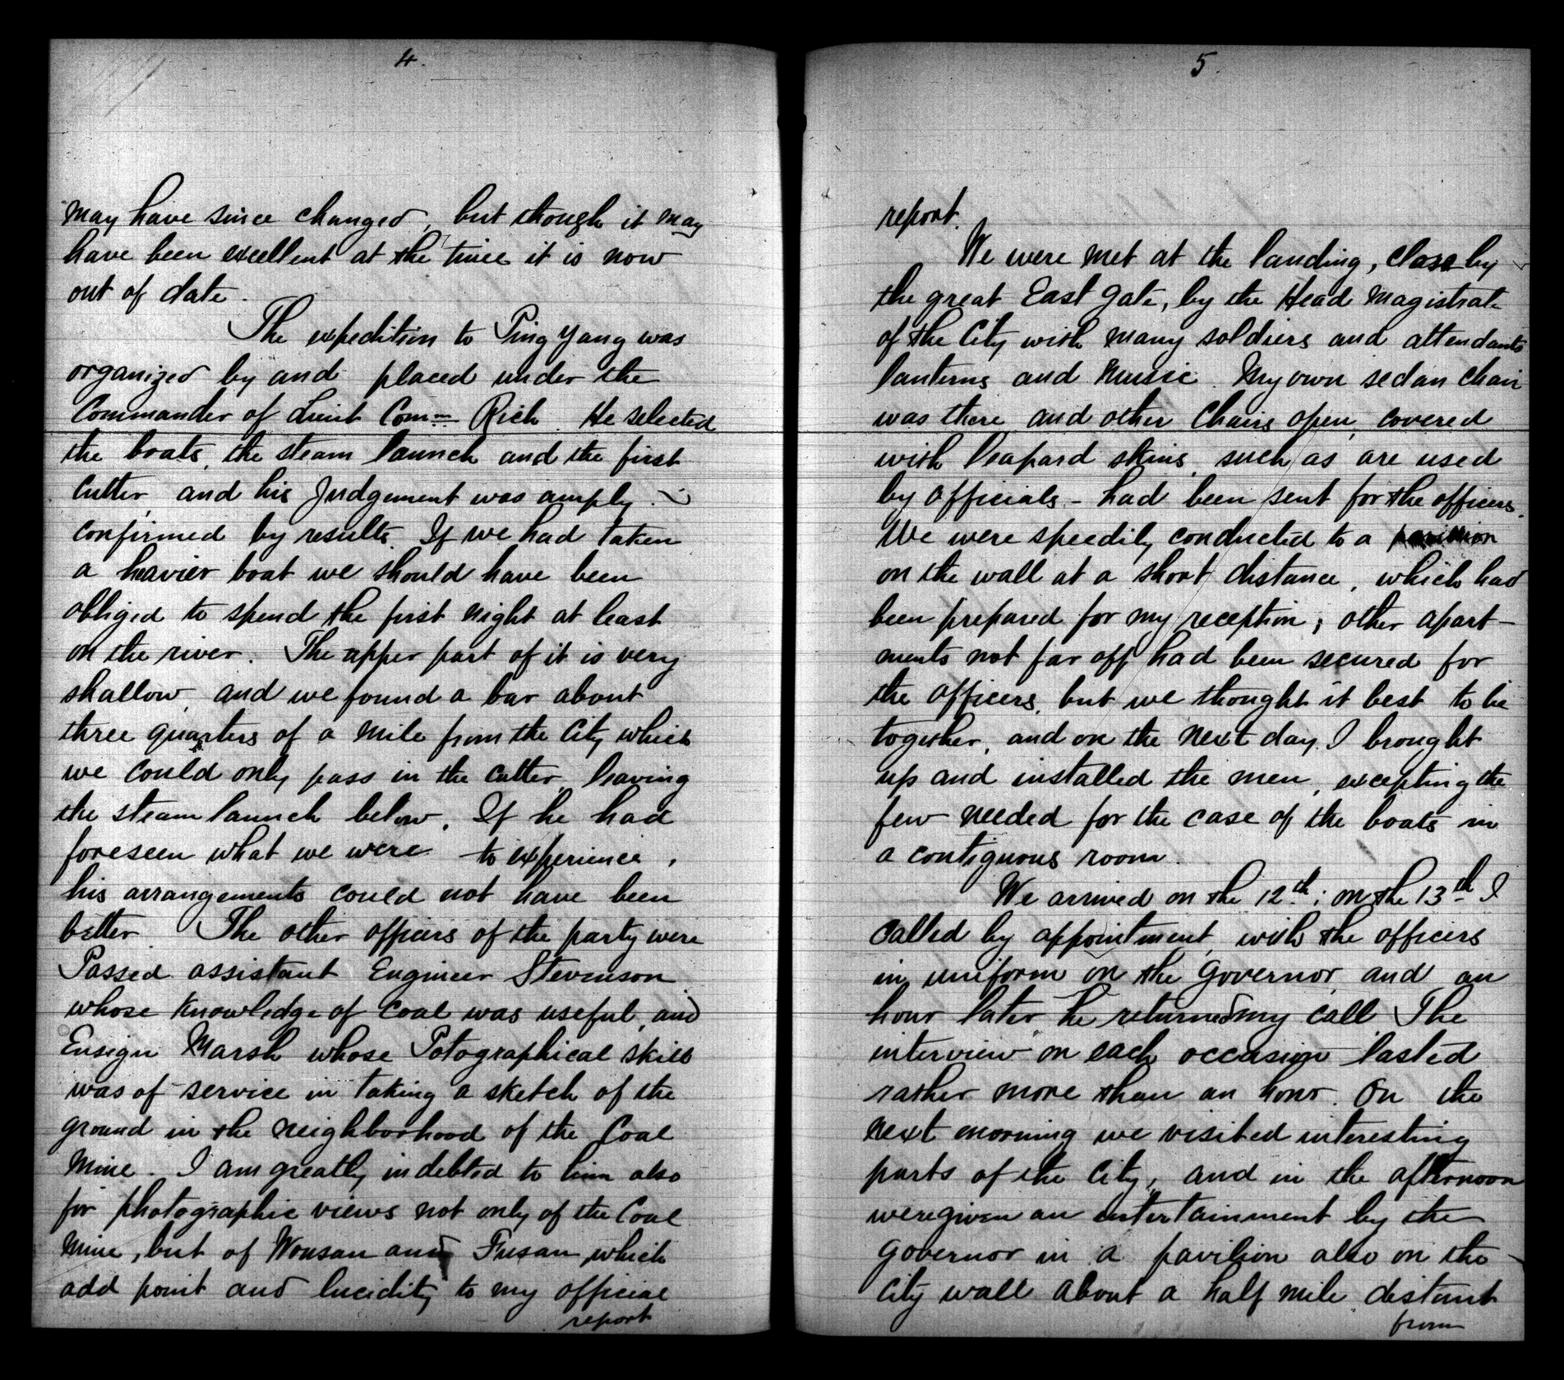 4.
may have since changed, but though it may
have been excellent at the time it is now
out of date.
The expedition to Ping Yang was
organized by and placed under the
Commander of Lieut Comr. Rich. He selected
the boats, the steam launch and the first
Cutter, and his Judgement was amply
confirmed by results. If we had taken
a heavier boat we should have been
obliged to spend the first night at least
on the river. The upper part of it is very
shallow, and we found a bar about
three quarters of a mile from the City which
we could only pass in the cutter, leaving
the steam launch below. If he had
foreseen what we were to experience,
his arrangements could not have been
better. The other officers of the party were
Passed assistant Engineer Stevenson
whose Knowledge of Coal was useful, and
Ensign Marsh whose Potographical skill
was of service in taking a sketch of the
ground in the neighborhood of the Coal
Mine. I am greatly indebted to him also
for photographic views not only of the Coal
Mine, but of Wonsan and Fusan, which
add point and lucidity to my official
report
5.
report.
We were met at the landing, close by
the great East gate, by the Head Magistrate
of the City with many soldiers and attendants
lanterns and Music. My own sedan chair
was there and other Chairs open, covered
with leapard skins, such as are used
by officials - had been sent for the officers.
We were speedily conducted to a pavilion
on the wall at a short distance, which had
been prepared for my reception; other apart-
ments not far off had been secured for
the officers, but we thought it best to be
together, and on the next day I brought
up and installed the men, excepting the
few needed for the case of the boats in
a contiguous room.
We arrived on the 12th; on the 13th I
called by appointment with the officers
in uniform on the Governor, and an
hour later he returned my call. The
interview on each occasion lasted
rather more than an hour. On the
next morning we visited interesting
parts of the City, and in the afternoon
were given an entertainment by the
Governor in a pavilion also on the
City wall about a half mile distant
from